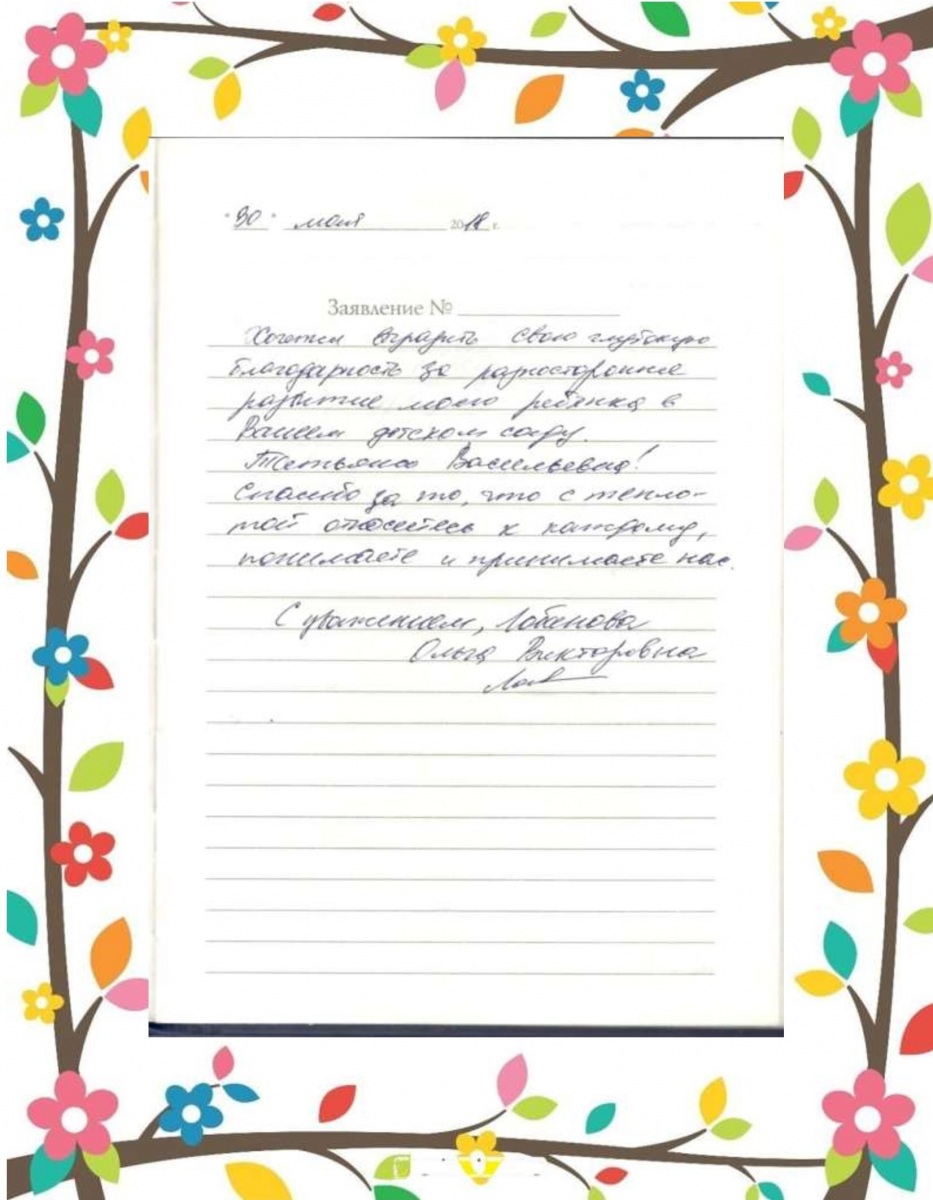 "30" мая 2018 г.
Заявление №
Хочется выразить свою глубокую
благодарность за разностороннее
развитие моего ребёнка в
Вашем детском саду.
Татьяна Васильевна!
Спасибо за то, что с тепло-
той относитесь к каждому,
понимаете и принимаете нас.
С уважением, Лобанова
Ольга Викторовна